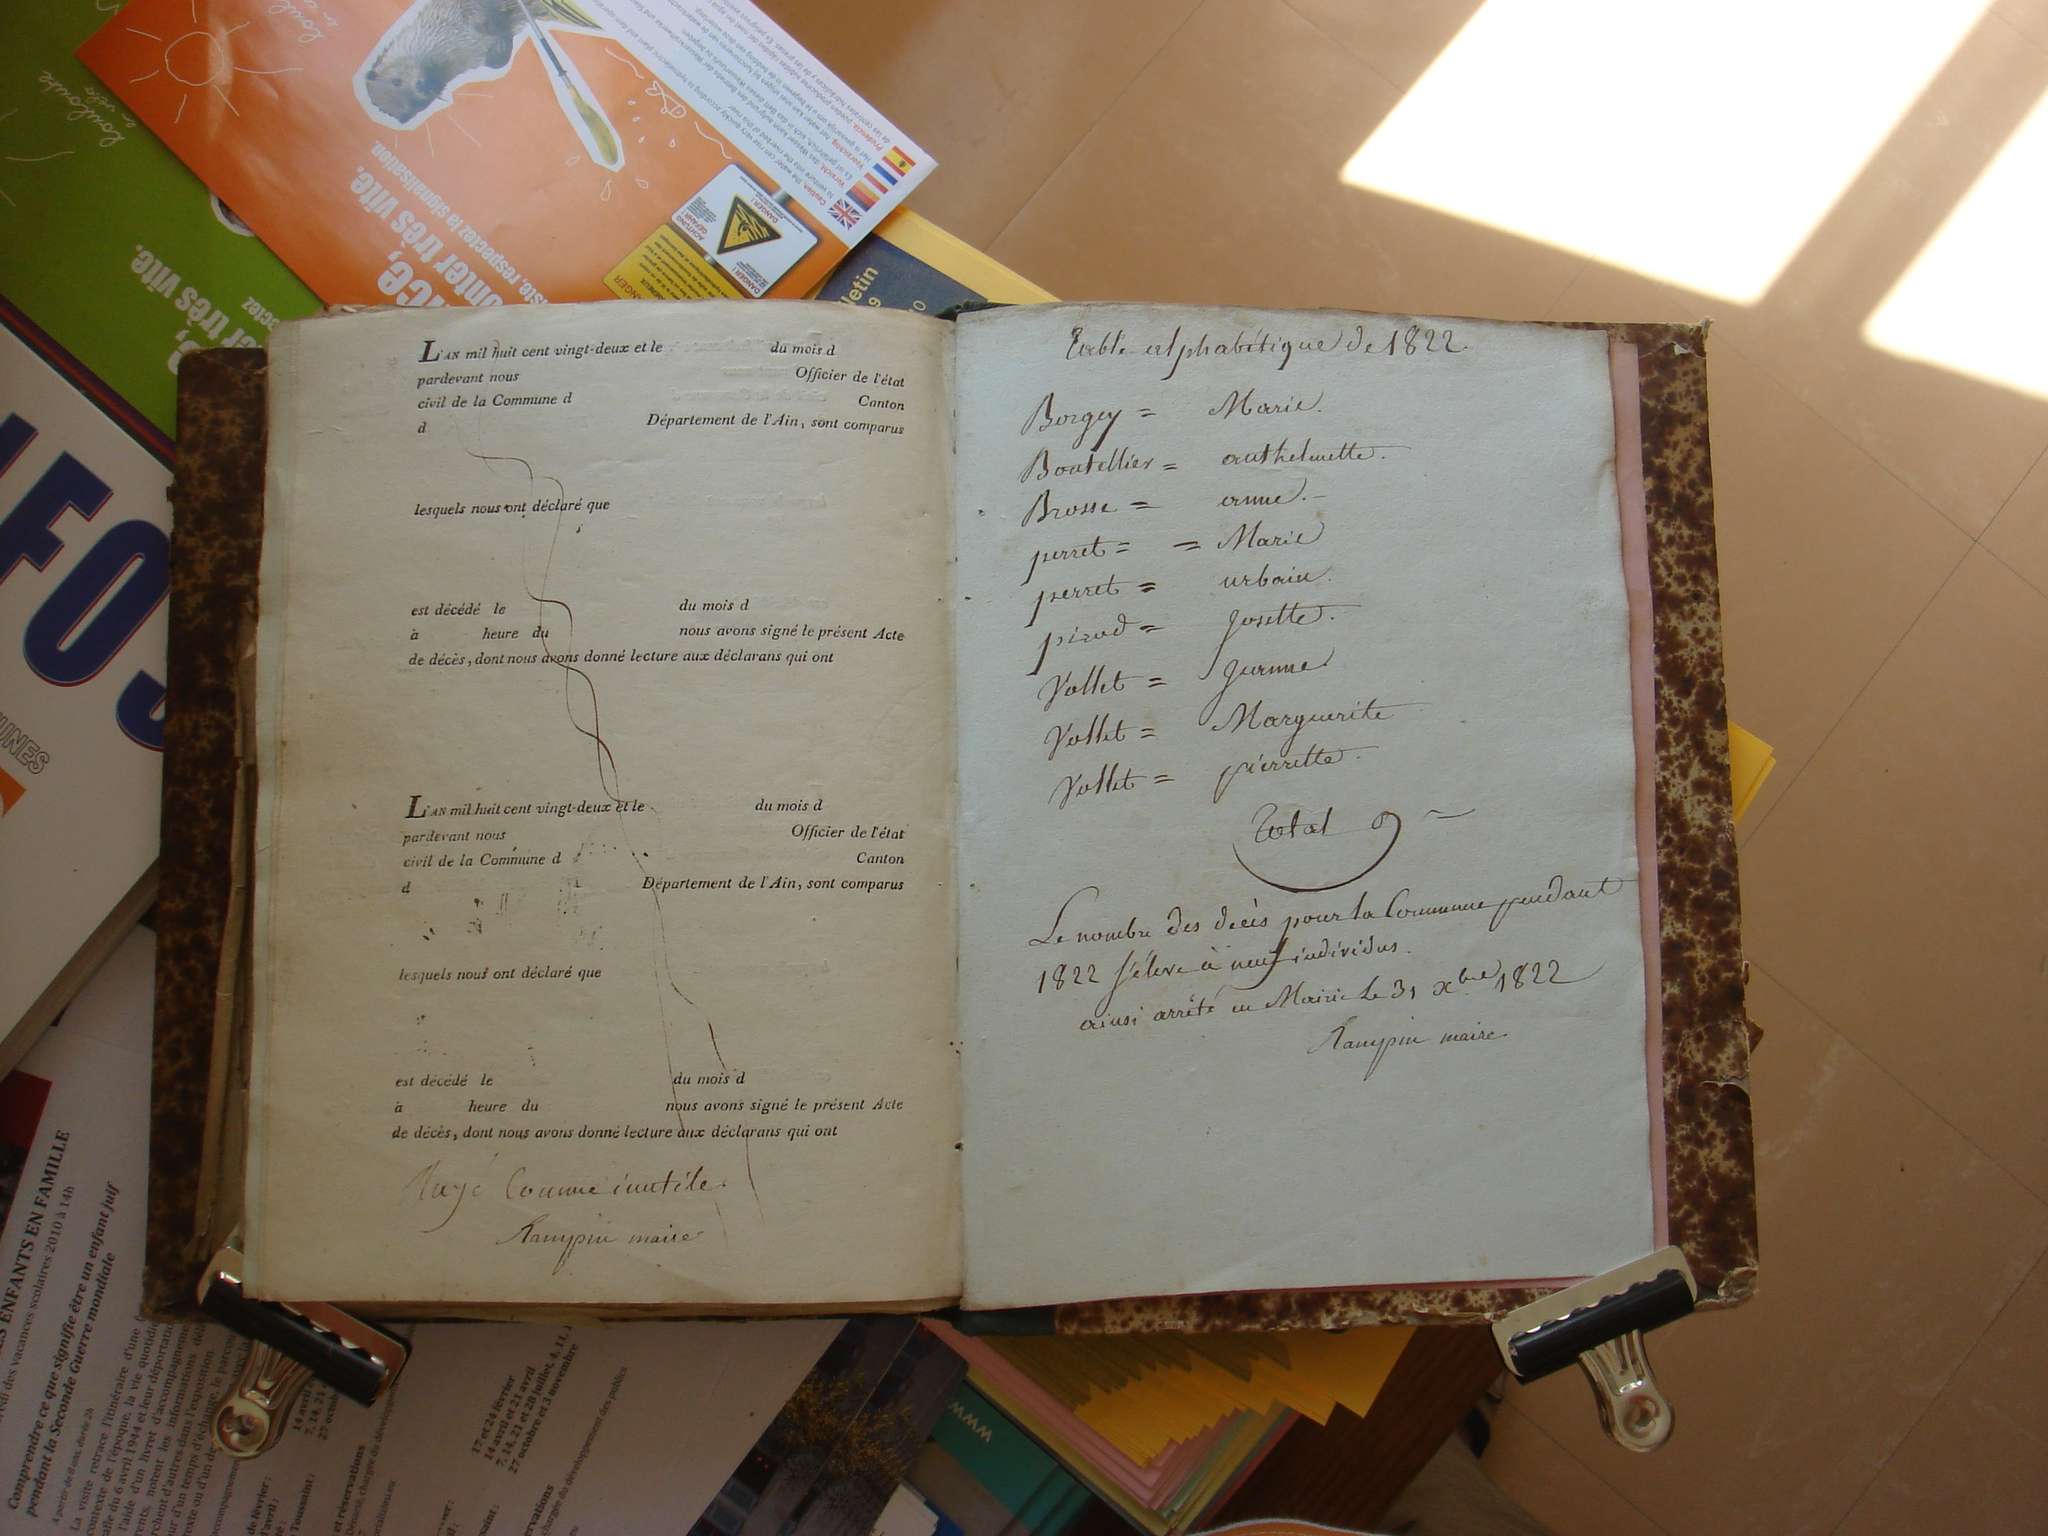 L'AN mil huit cent vingt-deux et le du mois d
pardevant nous Officier de l'état
civil de la Commune d Canton
d Département de l'Ain, sont comparus
lesquels nous ont déclaré que
est décédé le du mois d
à heure du nous avons signé le présent Acte
de décès, dont nous avons donné lecture aux déclarans qui ont
L'AN mil huit cent vingt-deux et le du mois d
pardevant nous Officier de l'état
civil de la Commune d Canton
d Département de l'Ain, sont comparus
lesquels nous ont déclaré que
est décédé le du mois d
à heure du nous avons signé le présent Acte
de décès, dont nous avons donné lecture aux déclarans qui ont
Rayé Comme inutile
Rampin maire
Table alphabétique de 1822.
Borgey = Marie.
Boutellier = anthelmette.
Brosse = anne. -
perret = = Marie
perret = urbain.
pirod = Josette.
Vollet = Jeanne
Vollet = Marguerite
Vollet = pierrette.
Total 9
Le nombre des décès pour la Commune pendant
1822 s'éleve à neuf individus.
ainsi arrêté en Mairie le 31 xbre 1822
Rampin maire
onter très vite.
iste, respectez la signalisation.
très vite.
ACHTUNG
GEFAHR
DANGER !
DANGER
lletin
UNES
ENFANTS EN FAMILLE
des vacances scolaires 2010 à 14h
Comprendre ce que signifie être un enfant juif
pendant la Seconde Guerre mondiale
17 et 24 février
14 avril et 21 avril
7, 14, 21 et 28 juillet, 4, 11, 1
27 octobre et 3 novembre
www